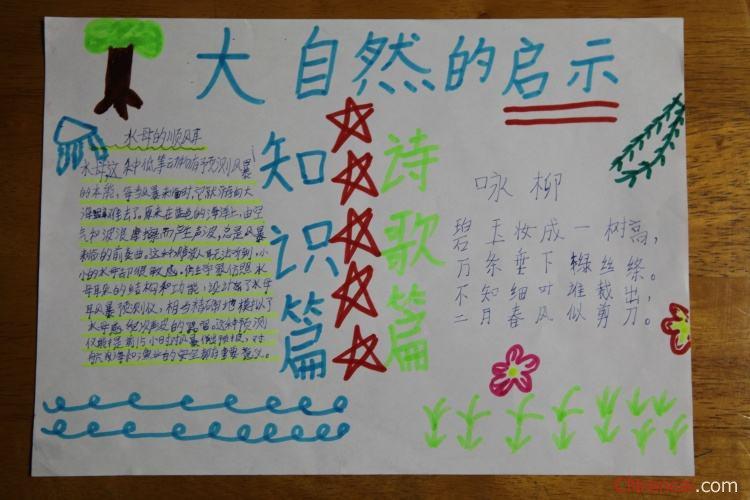 大自然的启示
水母的顺风耳
水母这种低等动物有预测风暴
的本能,每当风暴来临时,它就游向大
海避难去了。原来在蓝色的海洋上,由空
气和波浪摩擦而产生声波,总是风暴
来临的前奏曲。这种声波人耳无法听到,小
小的水母却很敏感。科学家仿照水
母耳朵的结构和功能,设计了水母
耳风暴预测仪,相当精确地模拟了
水母感受次声波的器官。这种预测
仪能提前15小时对风暴作出预报,对
航海和渔业的安全都有重要意义。
知识篇
诗歌篇
咏柳
碧玉妆成一树高,
万条垂下绿丝绦。
不知细叶谁裁出,
二月春风似剪刀。